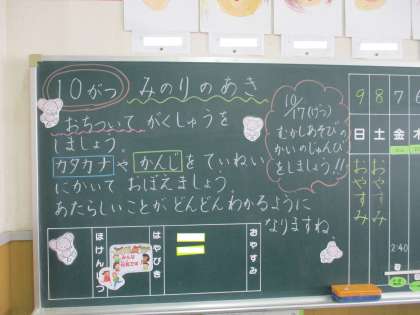 10がつ みのりのあき
おちついて がくしゅうを
しましょう。
カタカナや かんじを ていねい
にかいて おぼえましょう。
あたらしいことが どんどん わかるように
なりますね。
10/17(げつ)
むかしあそびの
かいのじゅんび
をしましょう!!
9 8 7
日 土 金
おやすみ
おやすみ
2:40
おやすみ
はやびき
ほけんしつ